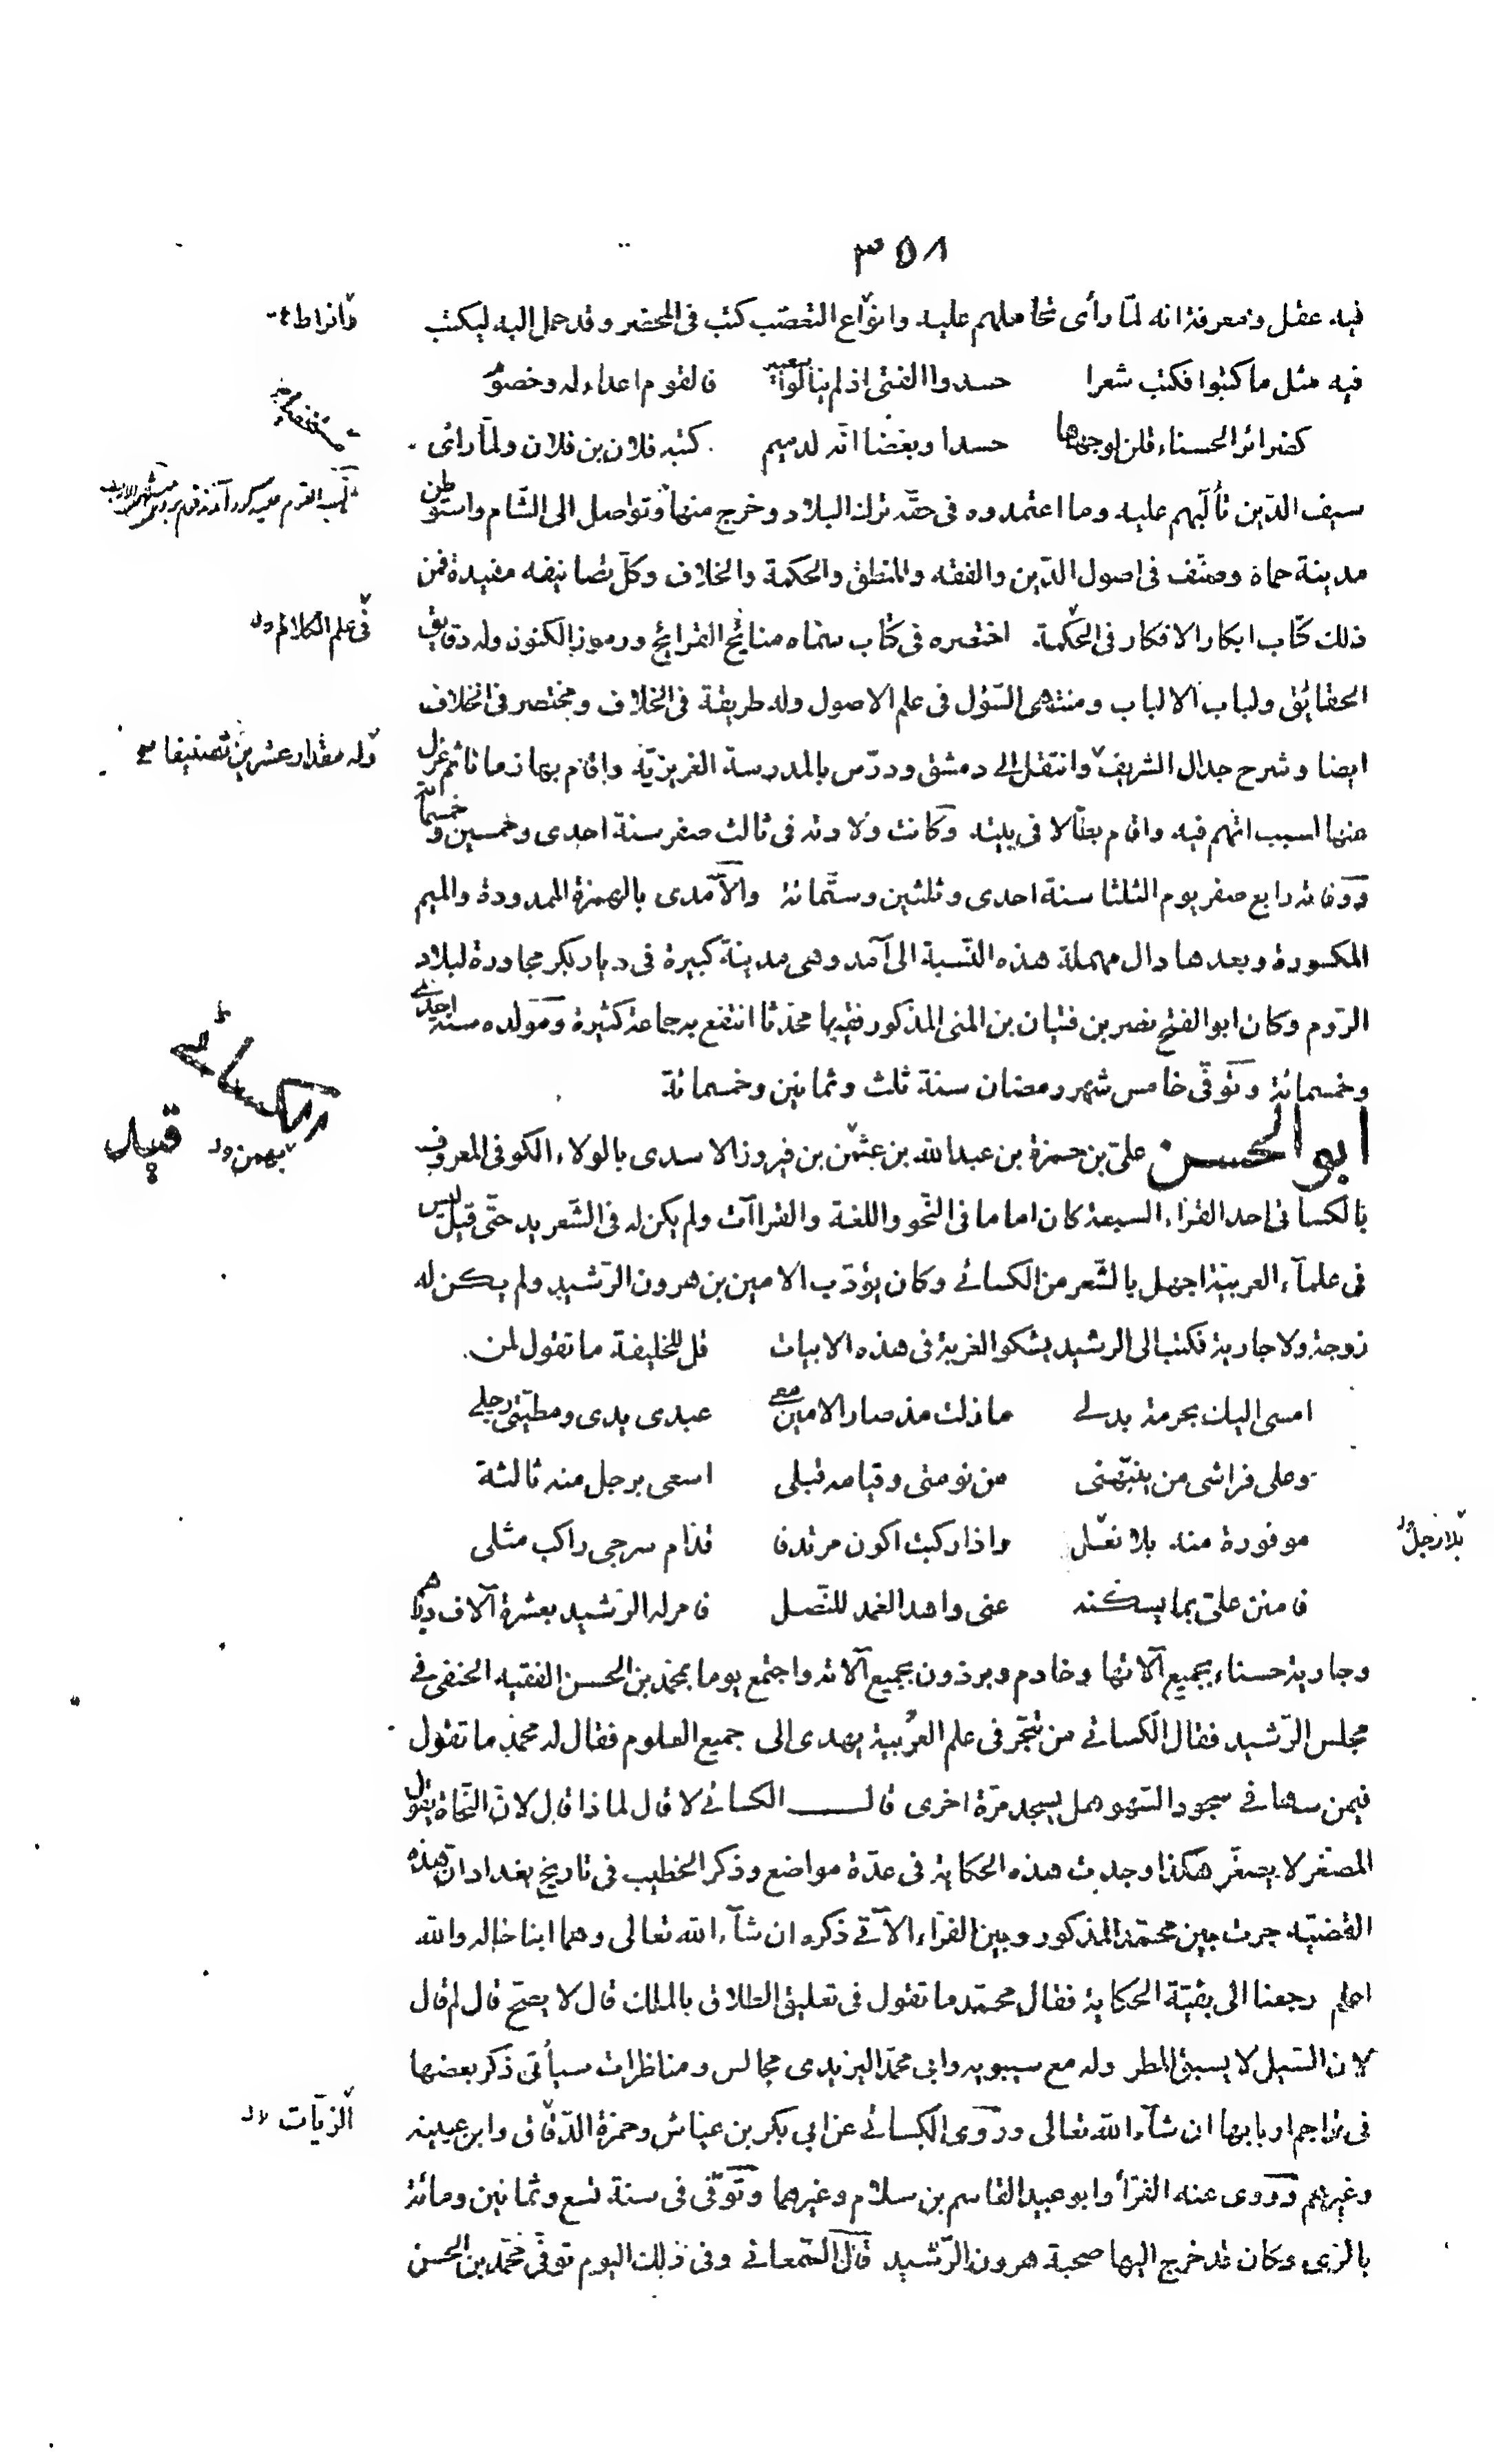 ٣٥٨
فيه عقل ومعرفة انه لمّا رأى تحاملهم عليه وانواع التعصّب كتب فى المحضر وقد حمل اليه ليكتب
وافراط
فيه مثل ما كتبوا فكتب شعرا حسدوا الفتى اذ لم ينالوا سعيه فالقوم اعداء له وخصوم
كضرائر الحسناء قلن لوجهها حسدا وبغضا انّه لدميم كتبه فلان بن فلان ولمّا رأى
سيف الدّين تألّبهم عليه وما اعتمدوه فى حقّه ترك البلاد وخرج منها وتواصل الى الشّام واستوطن
مدينة حماة وصنّف فى اصول الدّين والفقه والمنطق والحكمة والخلاف وكلّ تصانيفه مفيدة فمن
ذلك كتاب ابكار الافكار فى الحكمة اختصره فى كتاب سمّاه منائح القرائح ورموز الكنوز وله دقايق
فى علم الكلام
الحقايق ولباب الالباب ومنتهى السّؤل فى علم الاصول وله طريقة فى الخلاف ومختصر فى الخلاف
ايضا وشرح جدل الشريف وانتقل الى دمشق ودرّس بالمدرسة العزيزيّة واقام بها زمانا ثم عزل
وله مقدار عشرين تصنيفا
عنها لسبب اتّهم فيه واقام بطّالا فى بيته وكانت ولادته فى ثالث صفر سنة احدى وخمسين وخمسمائة
ووفاته رابع صفر يوم الثلثا سنة احدى وثلثين وستّمائة والآمدى بالهمزة الممدودة والميم
المكسورة وبعدها دال مهملة هذه النّسبة الى آمد وهى مدينة كبيرة فى ديار بكر مجاورة لبلاد
الرّوم وكان ابو الفتح نصر بن فتيان بن المنى المذكور فقيها محدّثا انتفع به جماعة كثيرة ومولده سنة احدى
وخمسمائة وتوفّى خامس شهر رمضان سنة ثلث وثمانين وخمسمائة
الكسائى
ابو الحسن علىّ بن حمزة بن عبد الله بن عثمن بن فيروز الاسدى بالولاء الكوفى المعروف
بهمن
بالكسائى احد القرّاء السبعة كان اماما فى النّحو واللغة والقراآت ولم يكن له فى الشّعر يد حتّى قيل ليس
فى علمآء العربيّة اجهل بالشّعر من الكسائى وكان يؤدّب الامين بن هرون الرّشيد ولم يكن له
زوجة ولا جارية فكتب الى الرشيد يشكو العزبة فى هذه الابيات قل للخليفة ما تقول لمن
امسى اليك بحرمة يدلى ما زلت مذ صار الامين معى عبدى يدى ومطيّتى رجلى
وعلى فراشى من ينبّهنى من نومتى وقيامه قبلى اسعى برجل منه ثالثة
موفورة منه بلا نعل واذا ركبت اكون مرتدفا قدّام سرجى راكب مثلى
بلا رجل
فامنن علىّ بما يسكّنه عنى واهد الغمد للنّصل فامر له الرّشيد بعشرة آلاف درهم
وجارية حسناء بجميع آلاتها وخادم وبرذون بجميع آلاته واجتمع يوما بمحمّد بن الحسن الفقيه الحنفى فى
مجلس الرّشيد فقال الكسائى من تبحّر فى علم العربية يهدى الى جميع العلوم فقال له محمد ما تقول
فيمن سها فى سجود السّهو هل يسجد مرّة اخرى قال الكسائى لا قال لماذا قال لانّ النّحاة يقول
المصغّر لا يصغّر هكذا وجدت هذه الحكاية فى عدّة مواضع وذكر الخطيب فى تاريخ بغداد انّ هذه
القضيّة جرت بين محمّد المذكور وبين الفرّاء الآتى ذكره ان شآء الله تعالى وهما ابنا خاله والله
اعلم رجعنا الى بقيّة الحكاية فقال محمّد ما تقول فى تعليق الطلاق بالملك قال لا يصحّ قال لم قال
لان السّيل لا يسبق المطر وله مع سيبويه وابى محمّد اليزيدى مجالس ومناظرات سيأتى ذكر بعضها
فى تراجم اربابها ان شآء الله تعالى وروى الكسائى عن ابى بكر بن عيّاش وحمزة الدّقاق وابن عيينه
الزيّات
وغيرهم وروى عنه الفرّأ وابو عبيد القاسم بن سلام وغيرهما وتوفّى فى سنة تسع وثمانين ومائة
بالرّى وكان قد خرج اليها صحبة هرون الرّشيد قال السّمعانى وفى ذلك اليوم توفّى محمّد بن الحسن